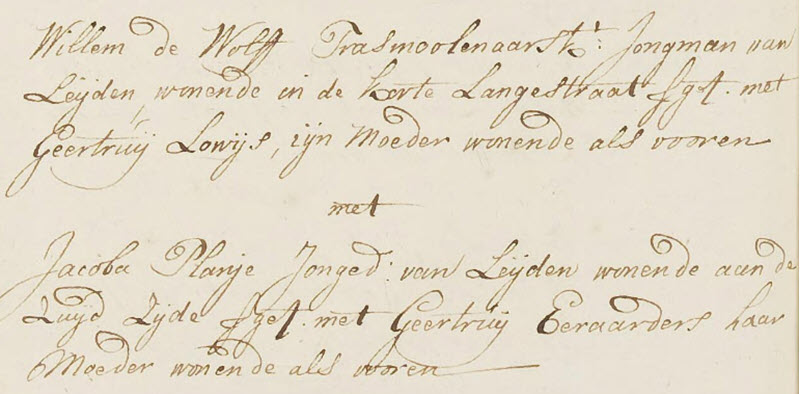 Willem de Wolff Trasmoolenaarskt: Jongman van
Leijden, wonende in de korte Langestraat Verzelt. met
Geertruij Lowijs, zijn Moeder wonende als vooren
met
Jacoba Planje Jonged: van Leijden wonende aan de
Zuijd Zijde met Geertruij Eeraarders haar
Moeder wonende als vooren